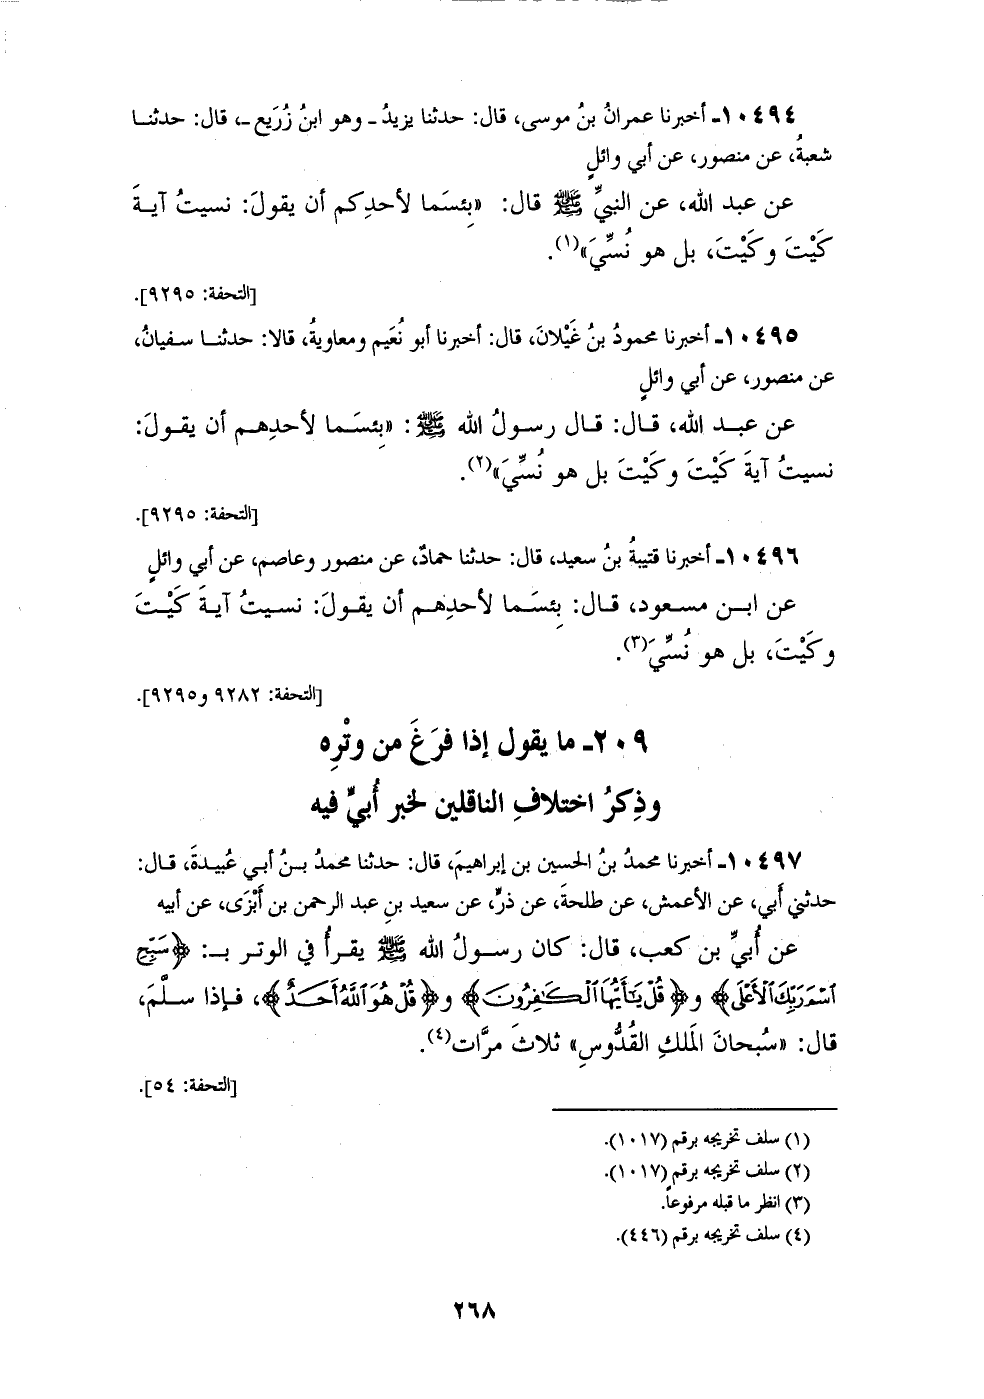 ١٠٤٩٤ـ أخبرنا عمرانُ بنُ موسى، قال: حدثنا يزيدُ ـ وهو ابنُ زُرَيع ـ، قال: حدثنا
شعبةُ، عن منصور، عن أبي وائلٍ
عن عبد الله، عن النبيِّ ﷺ قال: «بِئسَما لأحدِكم أن يقولَ: نسيتُ آيةَ
كَيْتَ وكَيْتَ، بل هو نُسِّيَ»(١).
[التحفة: ٩٢٩٥].
١٠٤٩٥ـ أخبرنا محمودُ بنُ غَيْلانَ، قال: أخبرنا أبو نُعَيم ومعاويةُ، قالا: حدثنا سفيانُ،
عن منصور، عن أبي وائلٍ
عن عبد الله، قال: قال رسولُ الله ﷺ: «بِئسَما لأحدِهم أن يقولَ:
نسيتُ آيةَ كَيْتَ وكَيْتَ بل هو نُسِّيَ»(٢).
[التحفة: ٩٢٩٥].
١٠٤٩٦ـ أخبرنا قتيبةُ بنُ سعيد، قال: حدثنا حمادٌ، عن منصور وعاصم، عن أبي وائلٍ
عن ابن مسعود، قال: بِئسَما لأحدِهم أن يقولَ: نسيتُ آيةَ كَيْتَ
وكَيْتَ، بل هو نُسِّيَ(٣).
[التحفة: ٩٢٨٢ و٩٢٩٥].
٢٠٩ـ ما يقول إذا فرَغَ من وتْرِه
وذِكرُ اختلافِ الناقلين لخبر أُبيٍّ فيه
١٠٤٩٧ـ أخبرنا محمدُ بنُ الحسين بن إبراهيمَ، قال: حدثنا محمدُ بنُ أبي عُبيدةَ، قال:
حدثني أَبي، عن الأعمش، عن طلحةَ، عن ذرٍّ، عن سعيد بنِ عبد الرحمن بن أَبْزَى، عن أبيه
عن أُبيِّ بن كعب، قال: كان رسولُ الله ﷺ يقرأُ في الوتر بـ: ﴿سَبِّحِ
ٱسْمَ رَبِّكَ ٱلْأَعْلَى﴾ و﴿قُلْ يَٰٓأَيُّهَا ٱلْكَٰفِرُونَ﴾ و﴿قُلْ هُوَ ٱللَّهُ أَحَدٌ﴾، فإذا سلَّمَ،
قال: «سُبحانَ المَلكِ القُدُّوسِ» ثلاثَ مرَّات(٤).
[التحفة: ٥٤].
(١) سلف تخريجه برقم (١٠١٧).
(٢) سلف تخريجه برقم (١٠١٧).
(٣) انظر ما قبله مرفوعاً.
(٤) سلف تخريجه برقم (٤٤٦).
٢٦٨